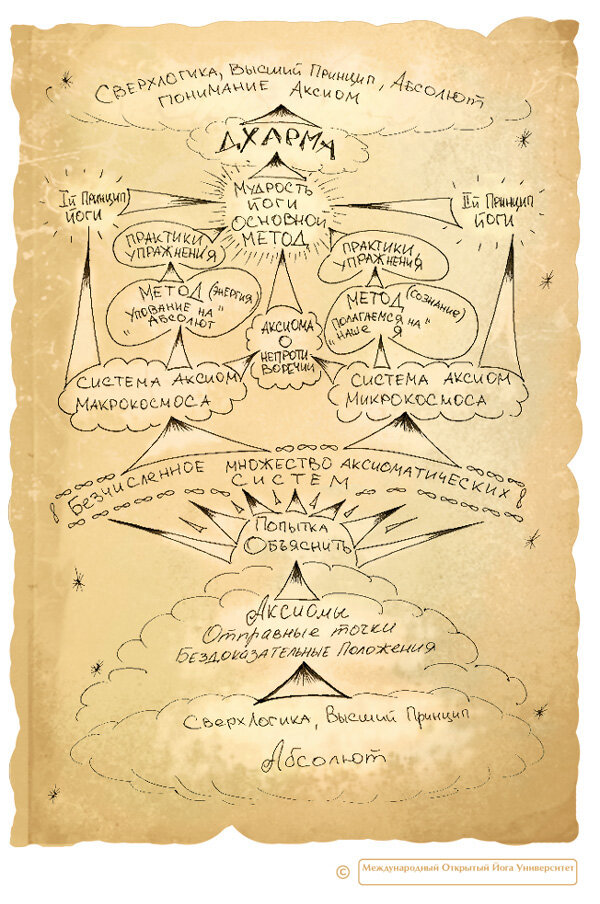 Сверхлогика, Высший Принцип, Абсолют
понимание Аксиом
ДХАРМА
Iй Принцип
Йоги
Мудрость
Йоги
Основной
Метод
IIй Принцип
Йоги
Практики
Упражнения
Практики
Упражнения
Метод (энергия)
"Упование на"
Абсолют
Метод (сознание)
"Полагаемся на"
наше Я
Аксиома
О
Непроти
воречии
Система Аксиом
Макрокосмоса
Система Аксиом
Микрокосмоса
Бесчисленное множество аксиоматических
систем
Попытка
Объяснить
Аксиомы
Отправные точки
Бездоказательные Положения
Сверхлогика, Высший Принцип
Абсолют
© Международный Открытый Йога Университет